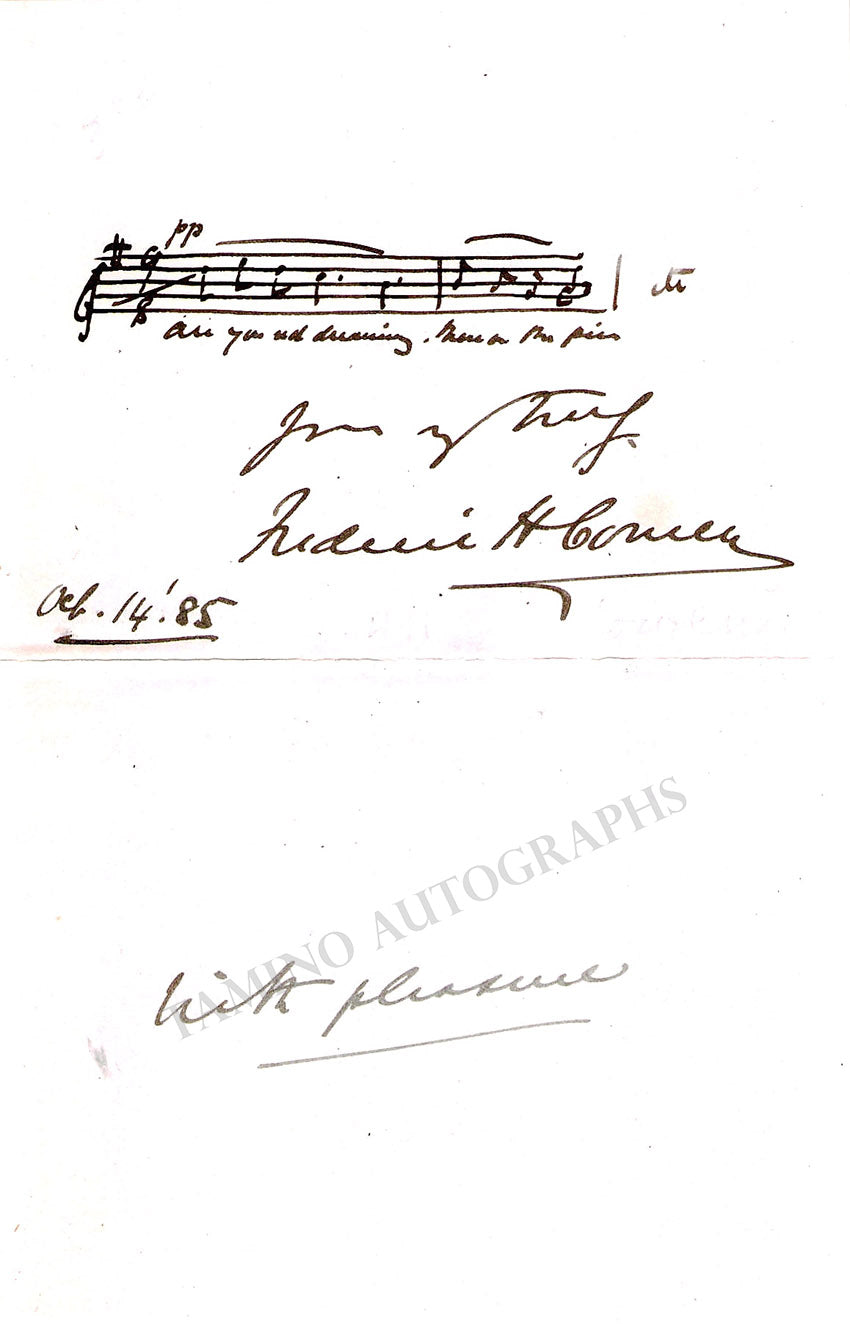 pp
6
8
are you not dreaming
etc
yours truly
Frederic H Cowen
Oct. 14'.85
TAMINO AUTOGRAPHS
with pleasure